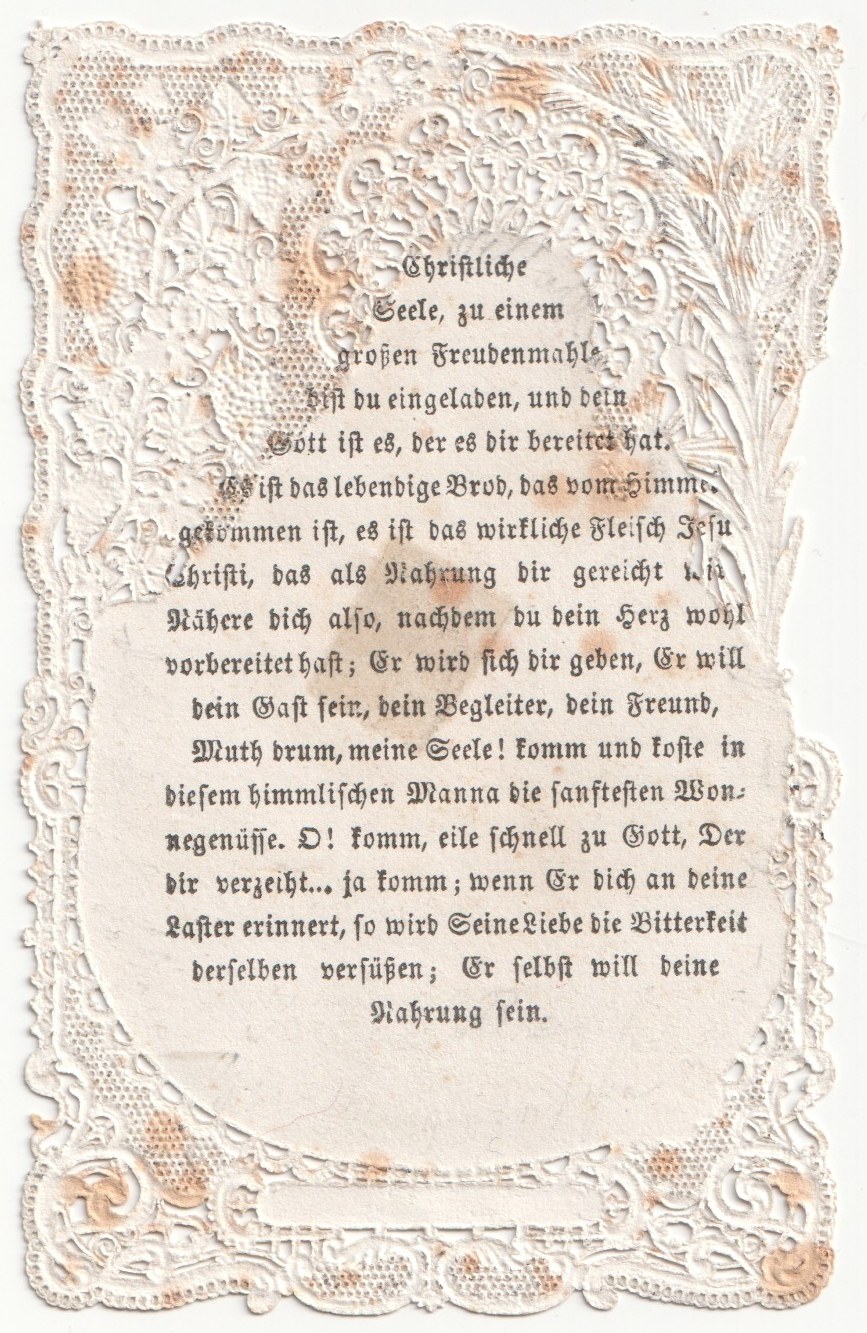 Christliche
Seele, zu einem
großen Freudenmahle
bist du eingeladen, und dein
Gott ist es, der es dir bereitet hat.
Es ist das lebendige Brod, das vom Himmel
gekommen ist, es ist das wirkliche Fleisch Jesu
Christi, das als Nahrung dir gereicht wird.
Nähere dich also, nachdem du dein Herz wohl
vorbereitet hast; Er wird sich dir geben, Er will
dein Gast sein, dein Begleiter, dein Freund,
Muth drum, meine Seele! komm und koste in
diesem himmlischen Manna die sanftesten Won-
negenüsse. O! komm, eile schnell zu Gott, Der
dir verzeiht... ja komm; wenn Er dich an deine
Laster erinnert, so wird Seine Liebe die Bitterkeit
derselben versüßen; Er selbst will deine
Nahrung sein.